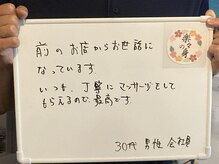 前のお店からお世話に
なっています。
いつも、丁寧にマッサージをして
もらえるので、最高です
30代 男性 会社員